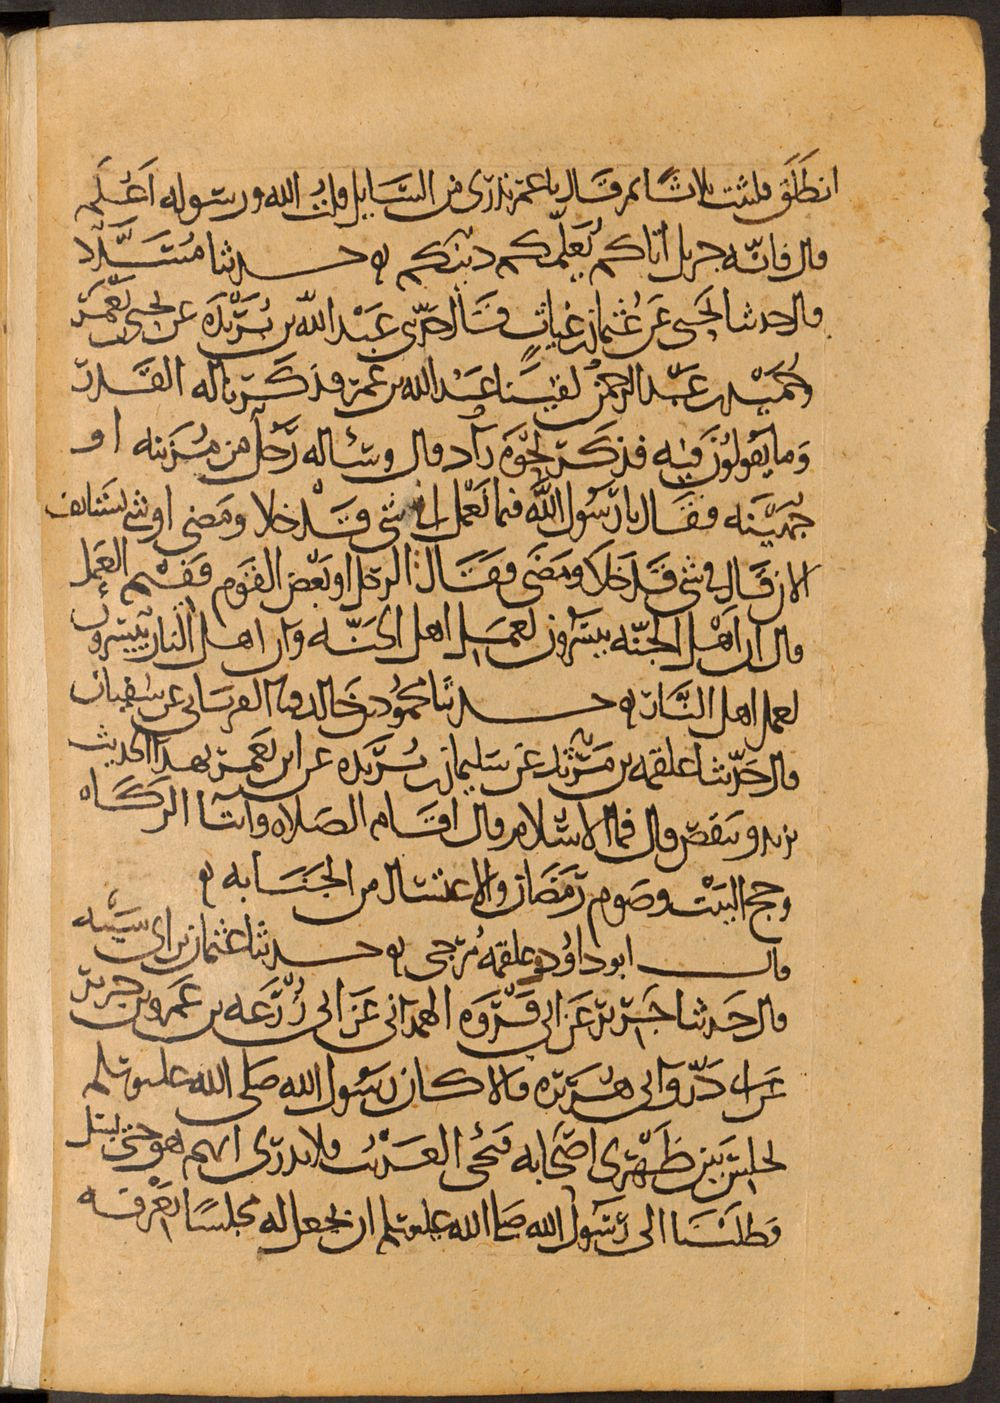 انطلق فلبثت ثلاثا ثم قال يا عمر تدرى من السايل قلت الله ورسوله اعلم
قال فانه جبريل اتاكم يعلمكم دينكم ه حدثنا مسدد
قال حدثنا يحيى عن عثمان بن غياث قال حدثنى عبد الله بن بريدة عن يحيى بن يعمر
وحميد بن عبد الرحمن لقينا عبد الله بن عمر فذكرنا له القدر
وما يقولون فيه فذكر نحوه زاد قال وسأله رجل من مزينه او
جهينه فقال يا رسول الله فيما نعمل افى شى قد خلا ومضى او شى يستانف
الان قال فى شى قد خلا ومضى فقال الرجل او بعض القوم ففيم العمل
قال ان اهل الجنه ييسرون لعمل اهل الجنه وان اهل النار ييسرون
لعمل اهل النار ه حدثنا محمود بن خالد ثنا الفريابى عن سفيان
قال حدثنا علقمه بن مرثد عن سليمان بن بريده عن ابن يعمر بهذا الحديث
يزيد وينقص قال فما الاسلام قال اقام الصلاه وايتا الزكاه
وحج البيت وصوم رمضان والاغتسال من الجنابه ه
قال ابو داود وعلقمه مرجى ه حدثنا عثمان بن ابى شيبه
قال حدثنا جرير عن ابى فروه الهمدانى عن ابى زرعه بن عمرو بن جرير
عن ابى ذر وابى هريره قالا كان رسول الله صلى الله عليه وسلم
يجلس بين ظهرى اصحابه فيجى الغريب فلا يدرى ايهم هو حتى يسل
فطلبنا الى رسول الله صلى الله عليه وسلم ان نجعل له مجلسا يعرفه